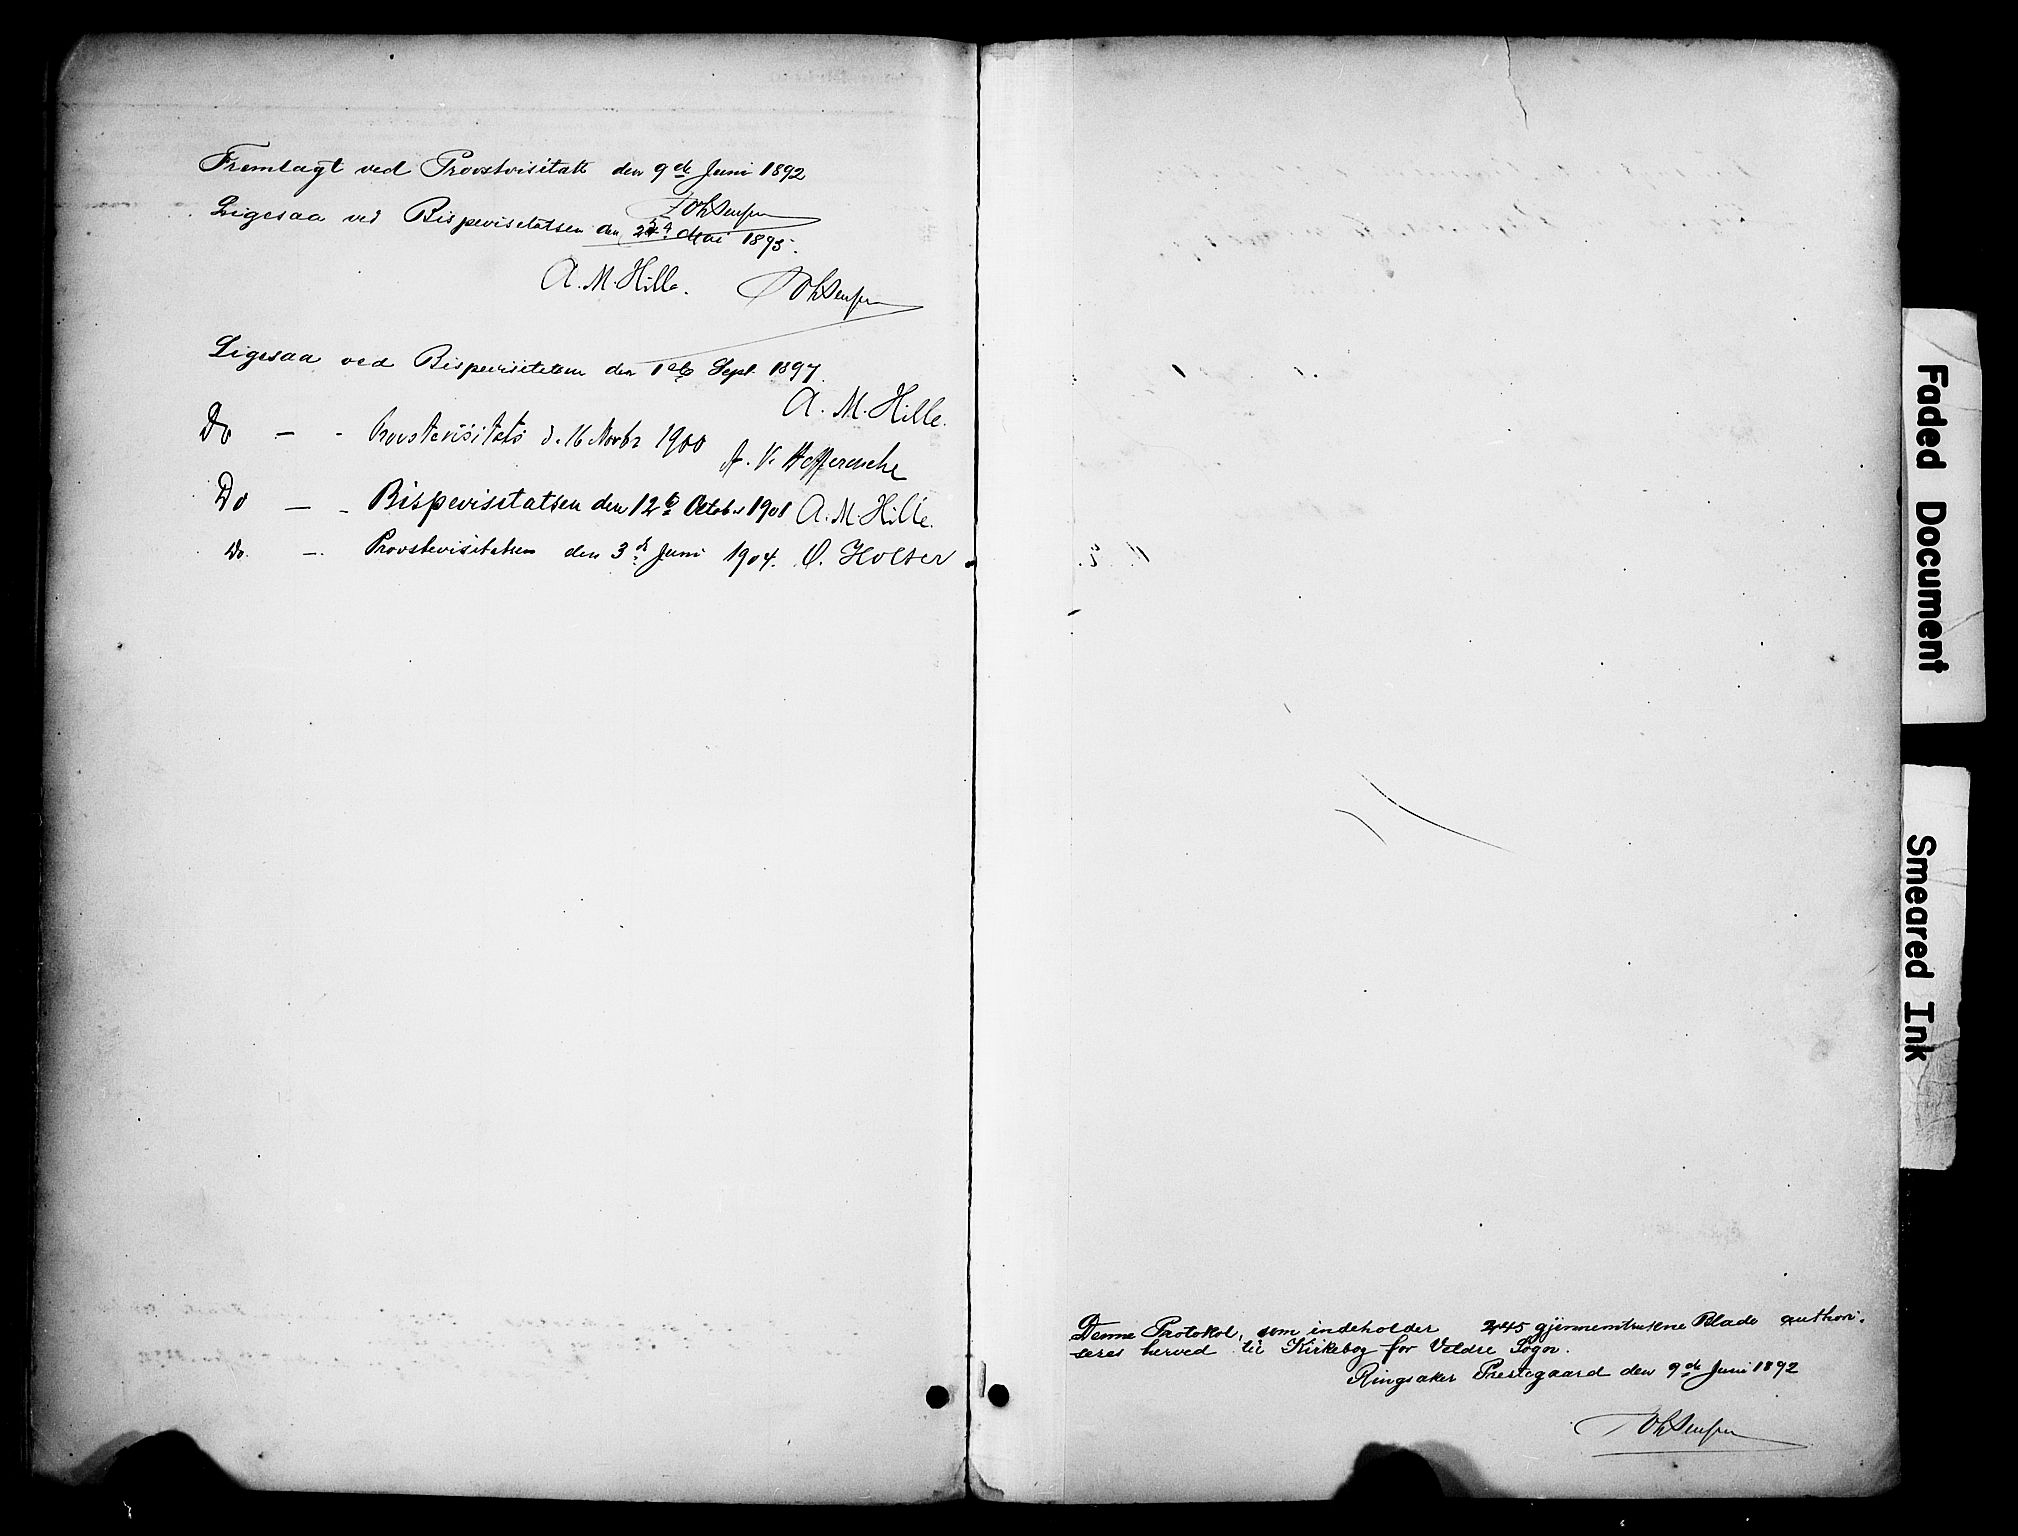 Fremlagt ved Provstvisitats den 9de Juni 1892
Ligesaa ved Bispevisitatsen den Mai 1895.
A. M. Hille.
Ligesaa ved Bispevisitatsen den 1ste Sept. 1897.
A. M. Hille.
Do — - Provstevisitats d. 16 Novbr 1900
Do — - Bispevisitatsen den 12te Octobr 1901 A. M. Hille.
Do. — Provstevisitatsen den 3de Juni 1904. O. Holser
Denne Protokol, som indeholder 245 gjennemtrukne Blade authori-
seres herved til Kirkebog for Veldre Sogn.
Ringsaker Prestegaard den 9de Juni 1892
Faded Document
Smeared Ink